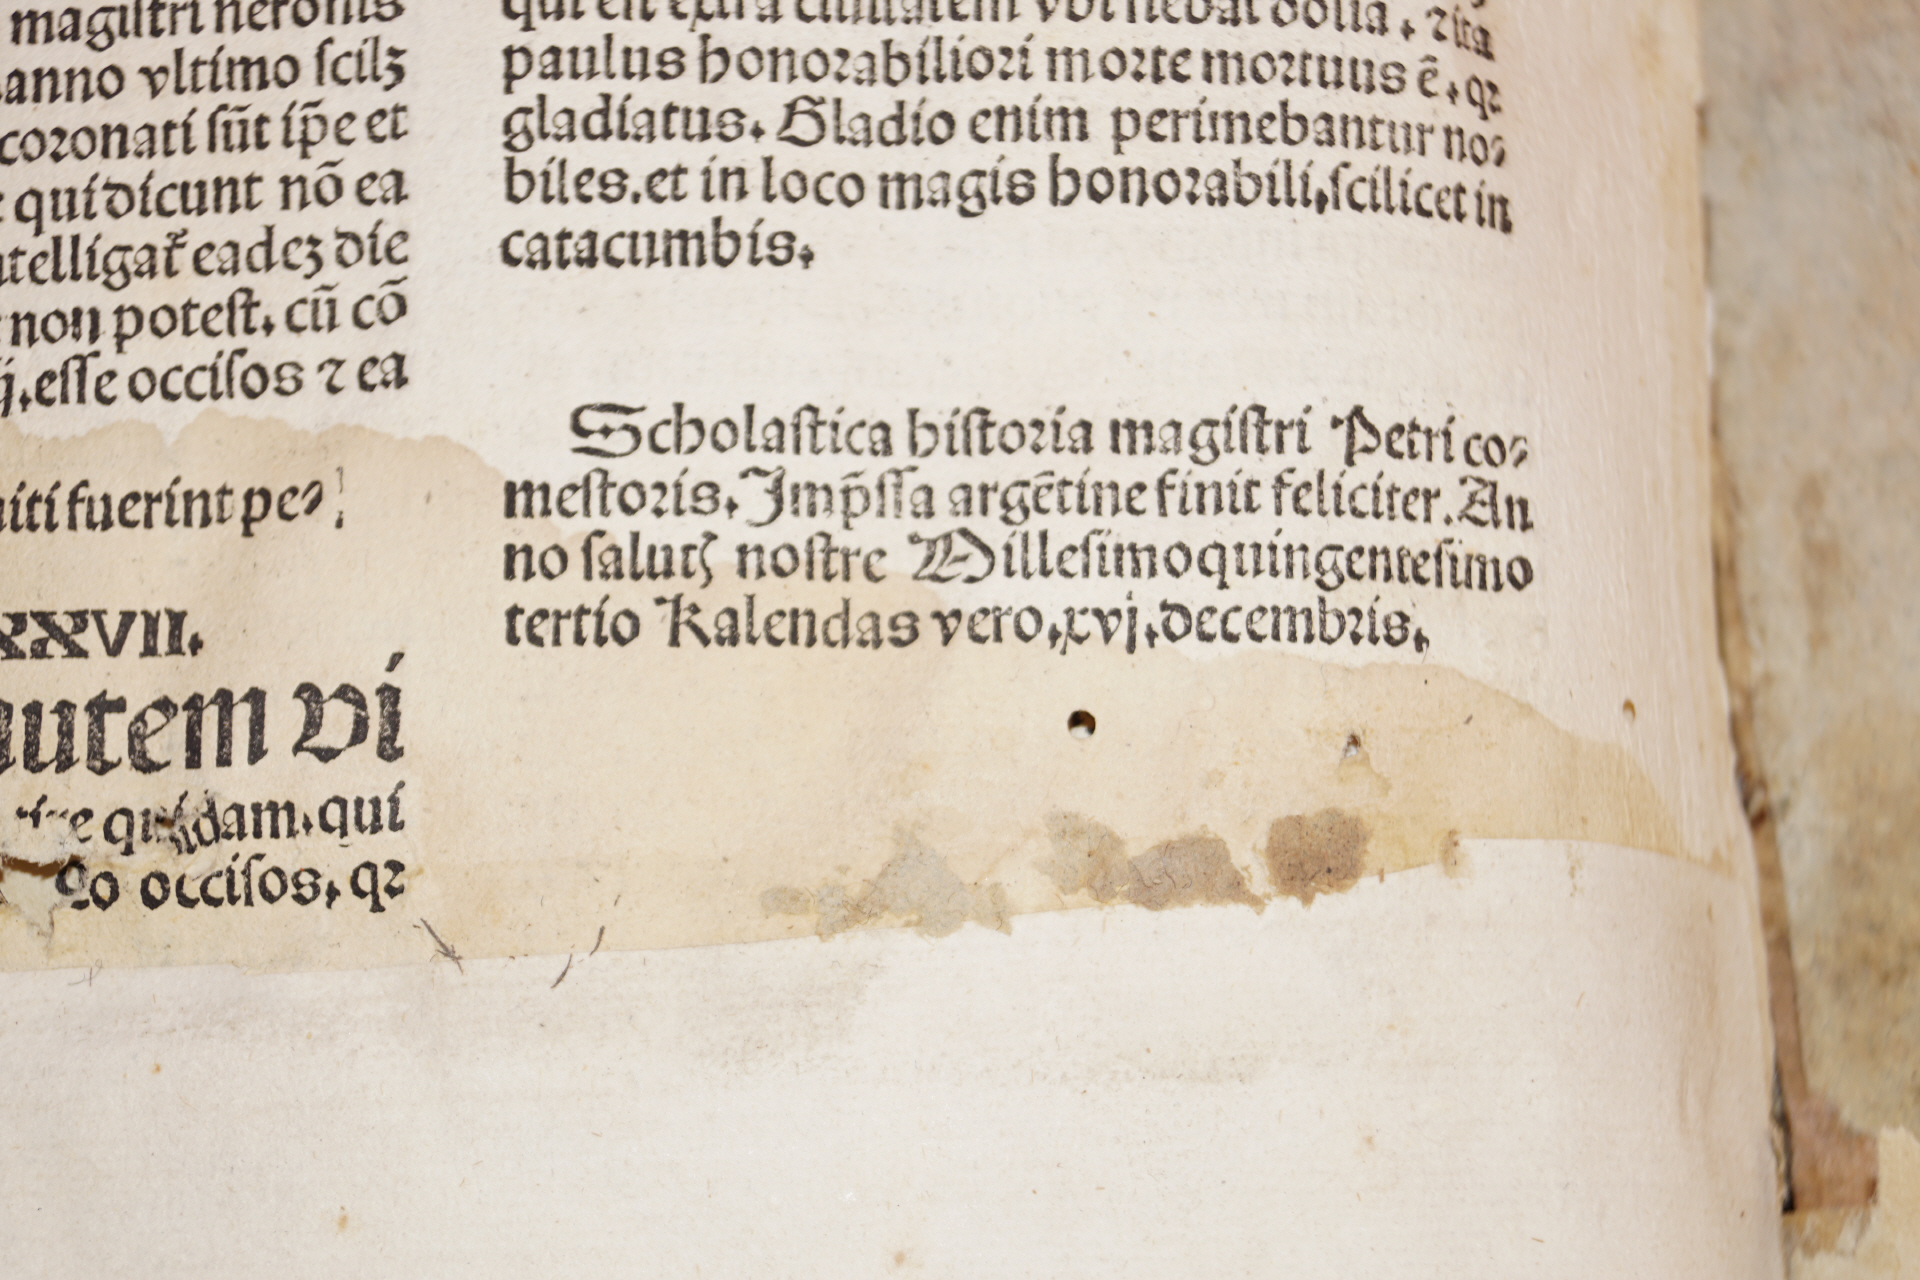 magiſtri neronis
anno vltimo ſcilꝫ
coronati ſūt ip̄e et
qui dicunt nō ea
telligat᷑ eadeꝫ die
non poteſt. cū cō
ij. eſſe occiſos ⁊ ea
niti fuerint pe⸗
XXVII.
autem vi
quidam. qui
do occiſos. qꝛ
qui eſt extra ciuitatem vbi fiebat dolia. ⁊ ita
paulus honoꝛabilioꝛi moꝛte moꝛtuus ē. qꝛ
gladiatus. Gladio enim perimebantur no⸗
biles. et in loco magis honoꝛabili, ſcilicet in
catacumbis.
Scholaſtica hiſtoꝛia magiſtri Petri co⸗
meſtoꝛis. Imp̄ſſa argētine finit feliciter. An
no ſalutꝭ noſtre Milleſimoquingenteſimo
tertio Kalendas vero. xvj. decembꝛis.